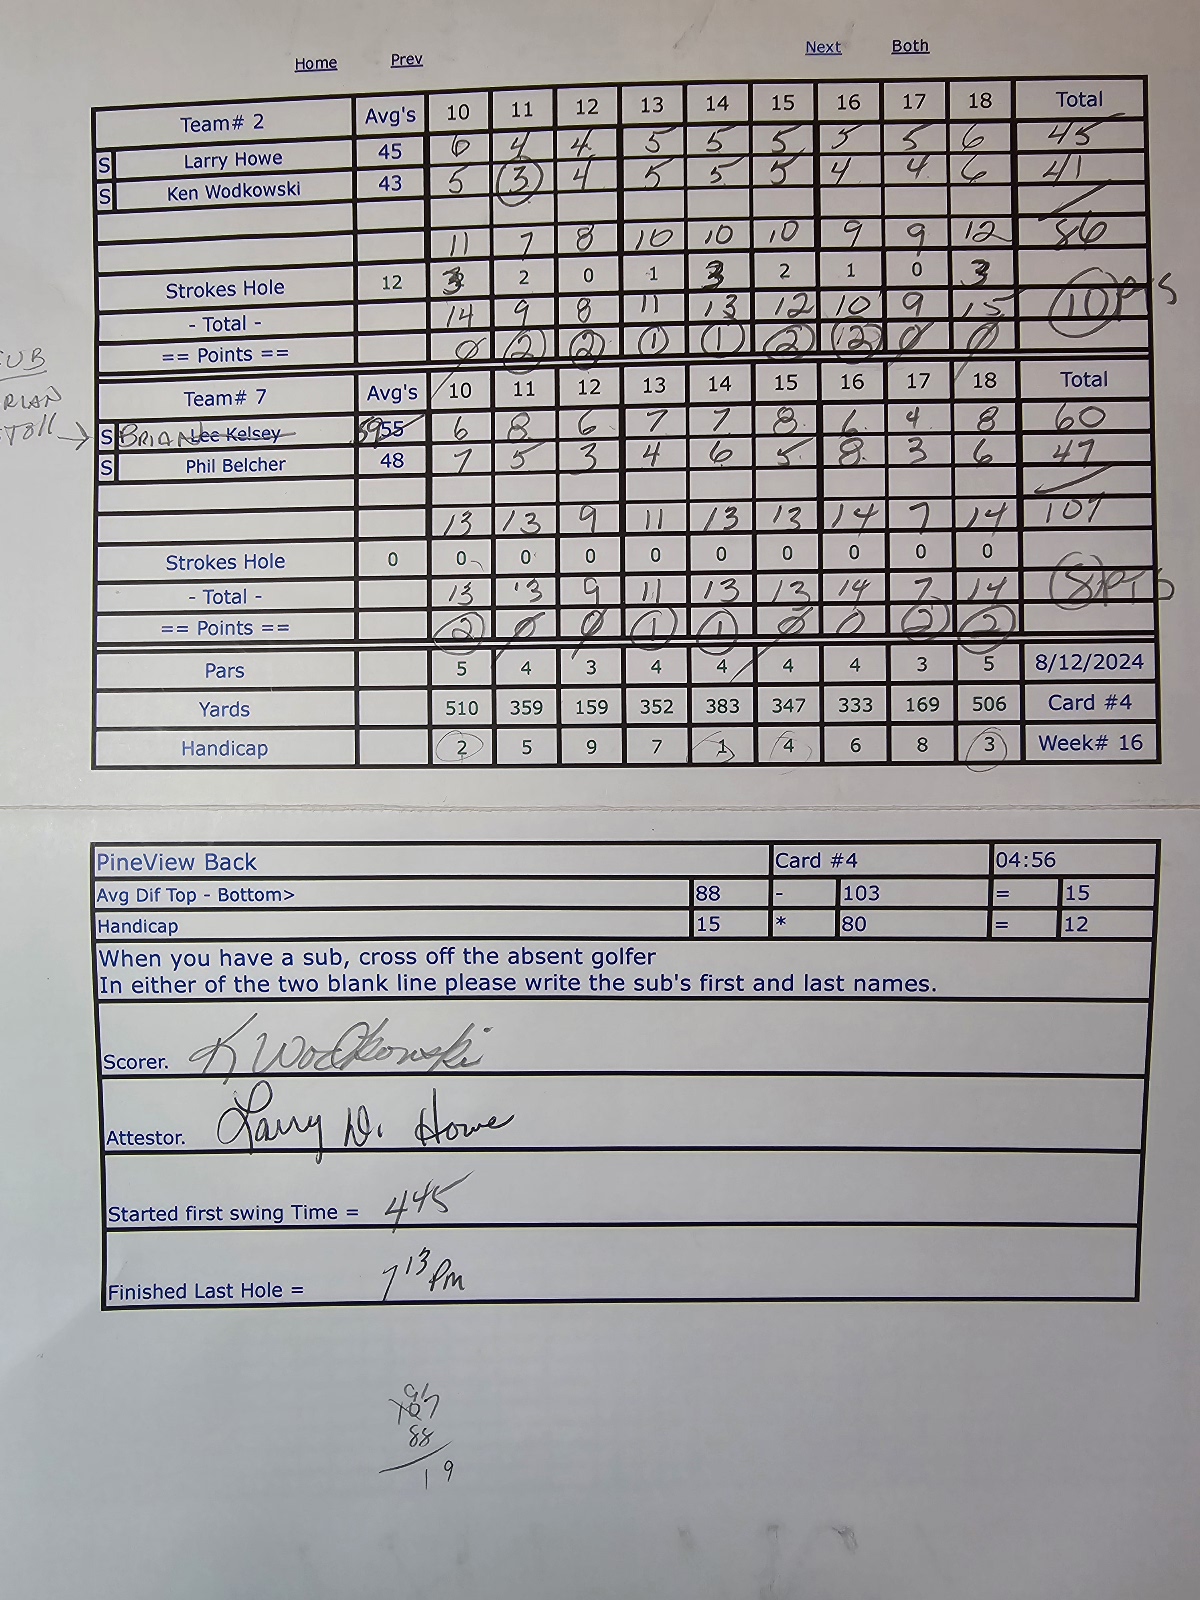 Home Prev Next Both
Team# 2 Avg's 10 11 12 13 14 15 16 17 18 Total
S Larry Howe 45 6 4 4 5 5 5 5 5 6 45
S Ken Wodkowski 43 5 3 4 5 5 5 4 4 6 41
11 7 8 10 10 10 9 9 12 86
Strokes Hole 12 3 2 0 1 3 2 1 0 3
- Total - 14 9 8 11 13 12 10 9 15 10 PTS
== Points == 0 2 2 1 1 2 2 0 0
SUB
Team# 7 Avg's 10 11 12 13 14 15 16 17 18 Total
S BRIAN Lee Kelsey 59 55 6 8 6 7 7 8 6 4 8 60
S Phil Belcher 48 7 5 3 4 6 5 8 3 6 47
13 13 9 11 13 13 14 7 14 107
Strokes Hole 0 0 0 0 0 0 0 0 0 0
- Total - 13 13 9 11 13 13 14 7 14 8 PTS
== Points == 2 0 0 1 1 0 0 2 2
Pars 5 4 3 4 4 4 4 3 5 8/12/2024
Yards 510 359 159 352 383 347 333 169 506 Card #4
Handicap 2 5 9 7 1 4 6 8 3 Week# 16
PineView Back Card #4 04:56
Avg Dif Top - Bottom> 88 - 103 = 15
Handicap 15 * 80 = 12
When you have a sub, cross off the absent golfer
In either of the two blank line please write the sub's first and last names.
Scorer. K Wodkowski
Attestor. Larry D. Howe
Started first swing Time = 445
Finished Last Hole = 7 13 Pm
107
88
19